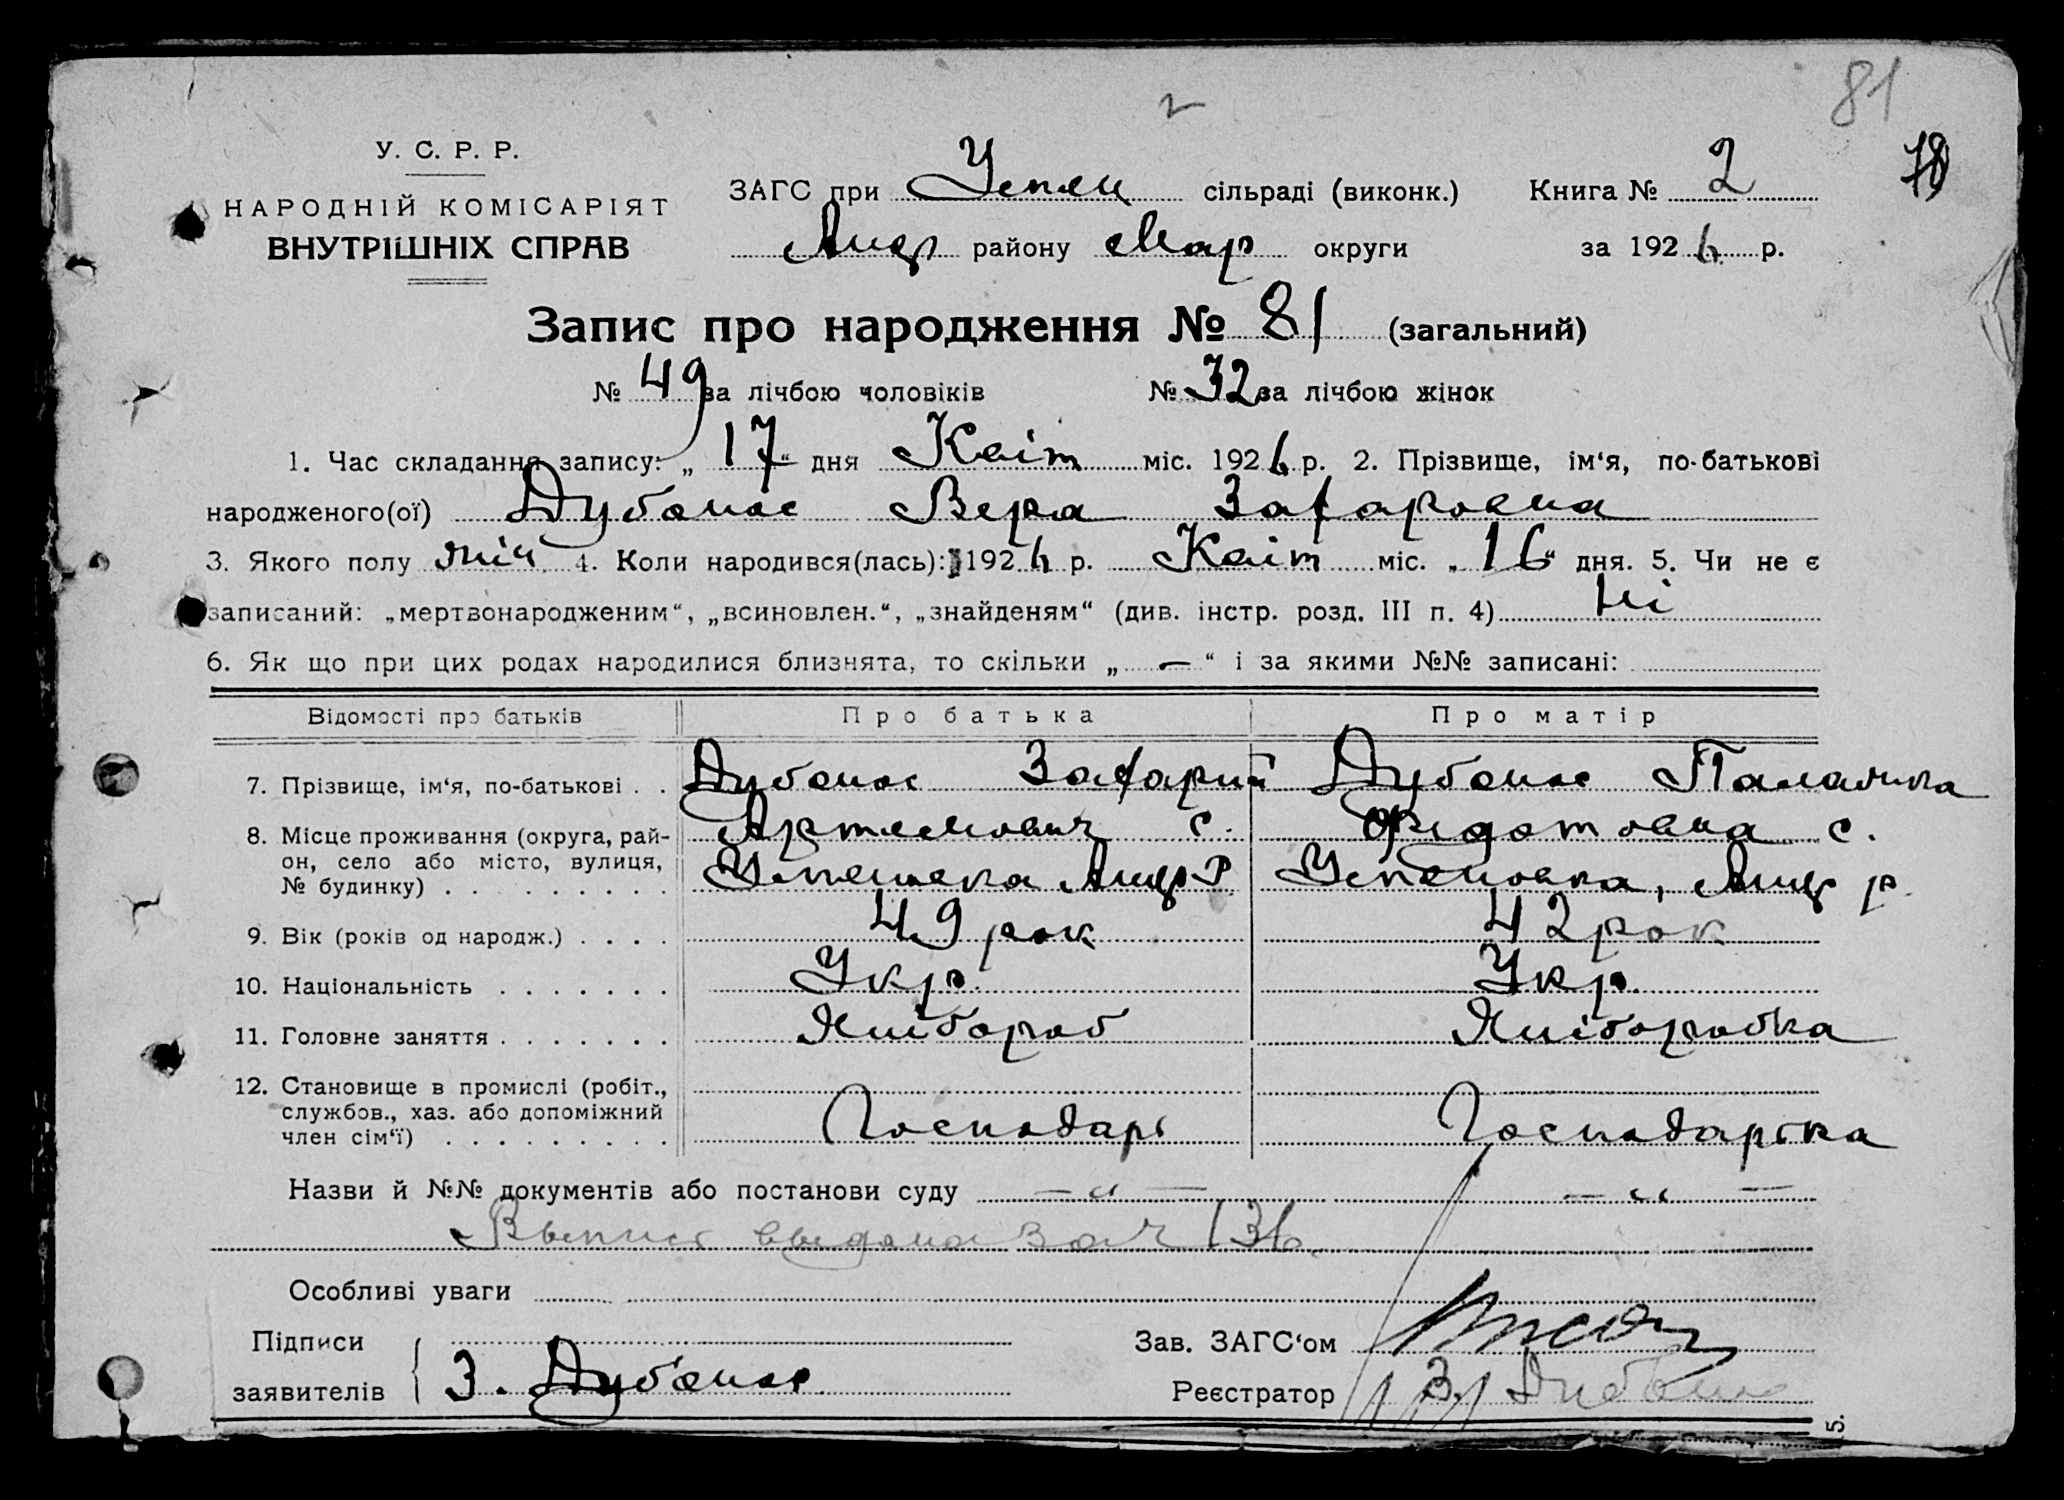 81
2
78
У. С. Р. Р.
НАРОДНІЙ КОМІСАРІЯТ
ВНУТРІШНІХ СПРАВ
ЗАГС при Успен сільраді (виконк.) Книга № 2
району Мар округи за 1926 р.
Запис про народження № 81 (загальний)
№ 49 за лічбою чоловіків № 32 за лічбою жінок
1. Час складання запису: „ 17 “ дня Квіт міс. 1926 р. 2. Прізвище, ім‘я, по-батькові
народженого(ої) Дубонос Вера Захаровна
3. Якого полу жіч 4. Коли народився(лась): 1926 р. Квіт міс. „ 16 “ дня. 5. Чи не є
записаний: „мертвонародженим“, „всиновлен.“, „знайденям“ (див. інстр. розд. III п. 4) Ні
6. Як що при цих родах народилися близнята, то скільки „ — “ і за якими №№ записані:
Відомості про батьків Про батька Про матір
7. Прізвище, ім‘я, по-батькові . . Дубонос Захарий Дубонос Палажка
8. Місце проживання (округа, рай- Артемович с. Федотовна с.
он, село або місто, вулиця, Успеновка Р Успеновка, р.
№ будинку) . . . . . . . . .
9. Вік (років од народж.) . . . . 49 рок 42 рок
10. Національність . . . . . . . Укр. Укр.
11. Головне заняття . . . . . . . Хлібороб Хлiборобка
12. Становище в промислі (робіт.,
службов., хаз. або допоміжний Господарь Господарька
член сім‘ї) . . . . . . . . .
Назви й №№ документів або постанови суду — „ — — „ —
Выпись выдана за № 136.
Особливі уваги
Підписи Зав. ЗАГС‘ом
заявителів З. Дубонос Реєстратор З. Дубонос
5.